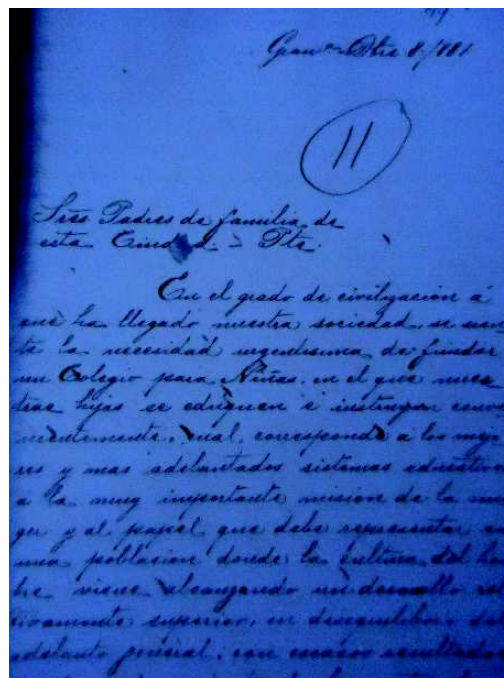 Gran.ª Obre 8/881
11
Sres Padres de familia de
esta Ciudad. = Pte.
En el grado de civilizacion á
que ha llegado nuestra sociedad, se sien
te la necesidad urgentisima de fundar
un Colegio para Niñas, en el que nues
tras hijas se eduquen é instruyan conve
nientemente, cual corresponde á los mejo
res y mas adelantados sistemas educativos
a la muy importante mision de la mu
ger y al papel que debe representar en
una poblacion donde la cultura del hom
bre viene alcanzando un desarrollo rela
tivamente superior, en desequilibrio del
adelanto general, con escasos resultados